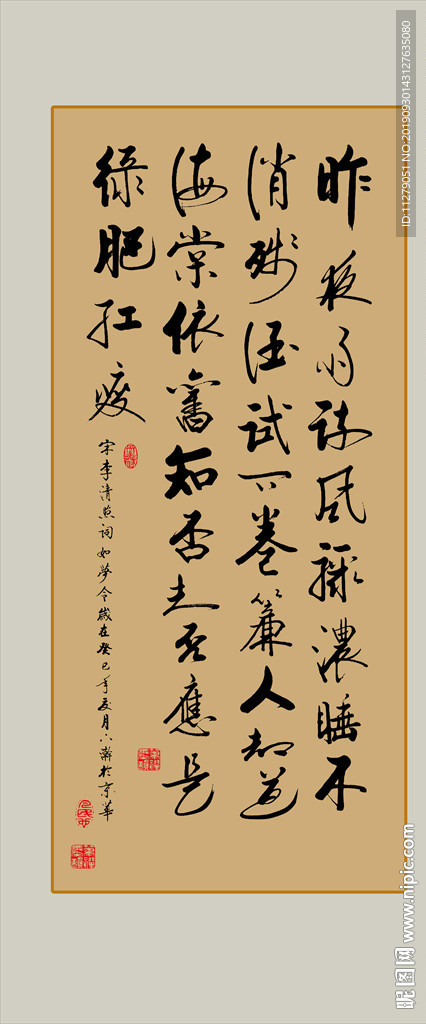 昨夜雨疎风驟濃睡不
消殘酒試问卷簾人却道
海棠依舊知否知否應是
绿肥红瘦
宋李清照词如夢令歲在癸巳年夏月六於京華
ID:11279051 NO:20190930143127635080
昵图网 www.nipic.com